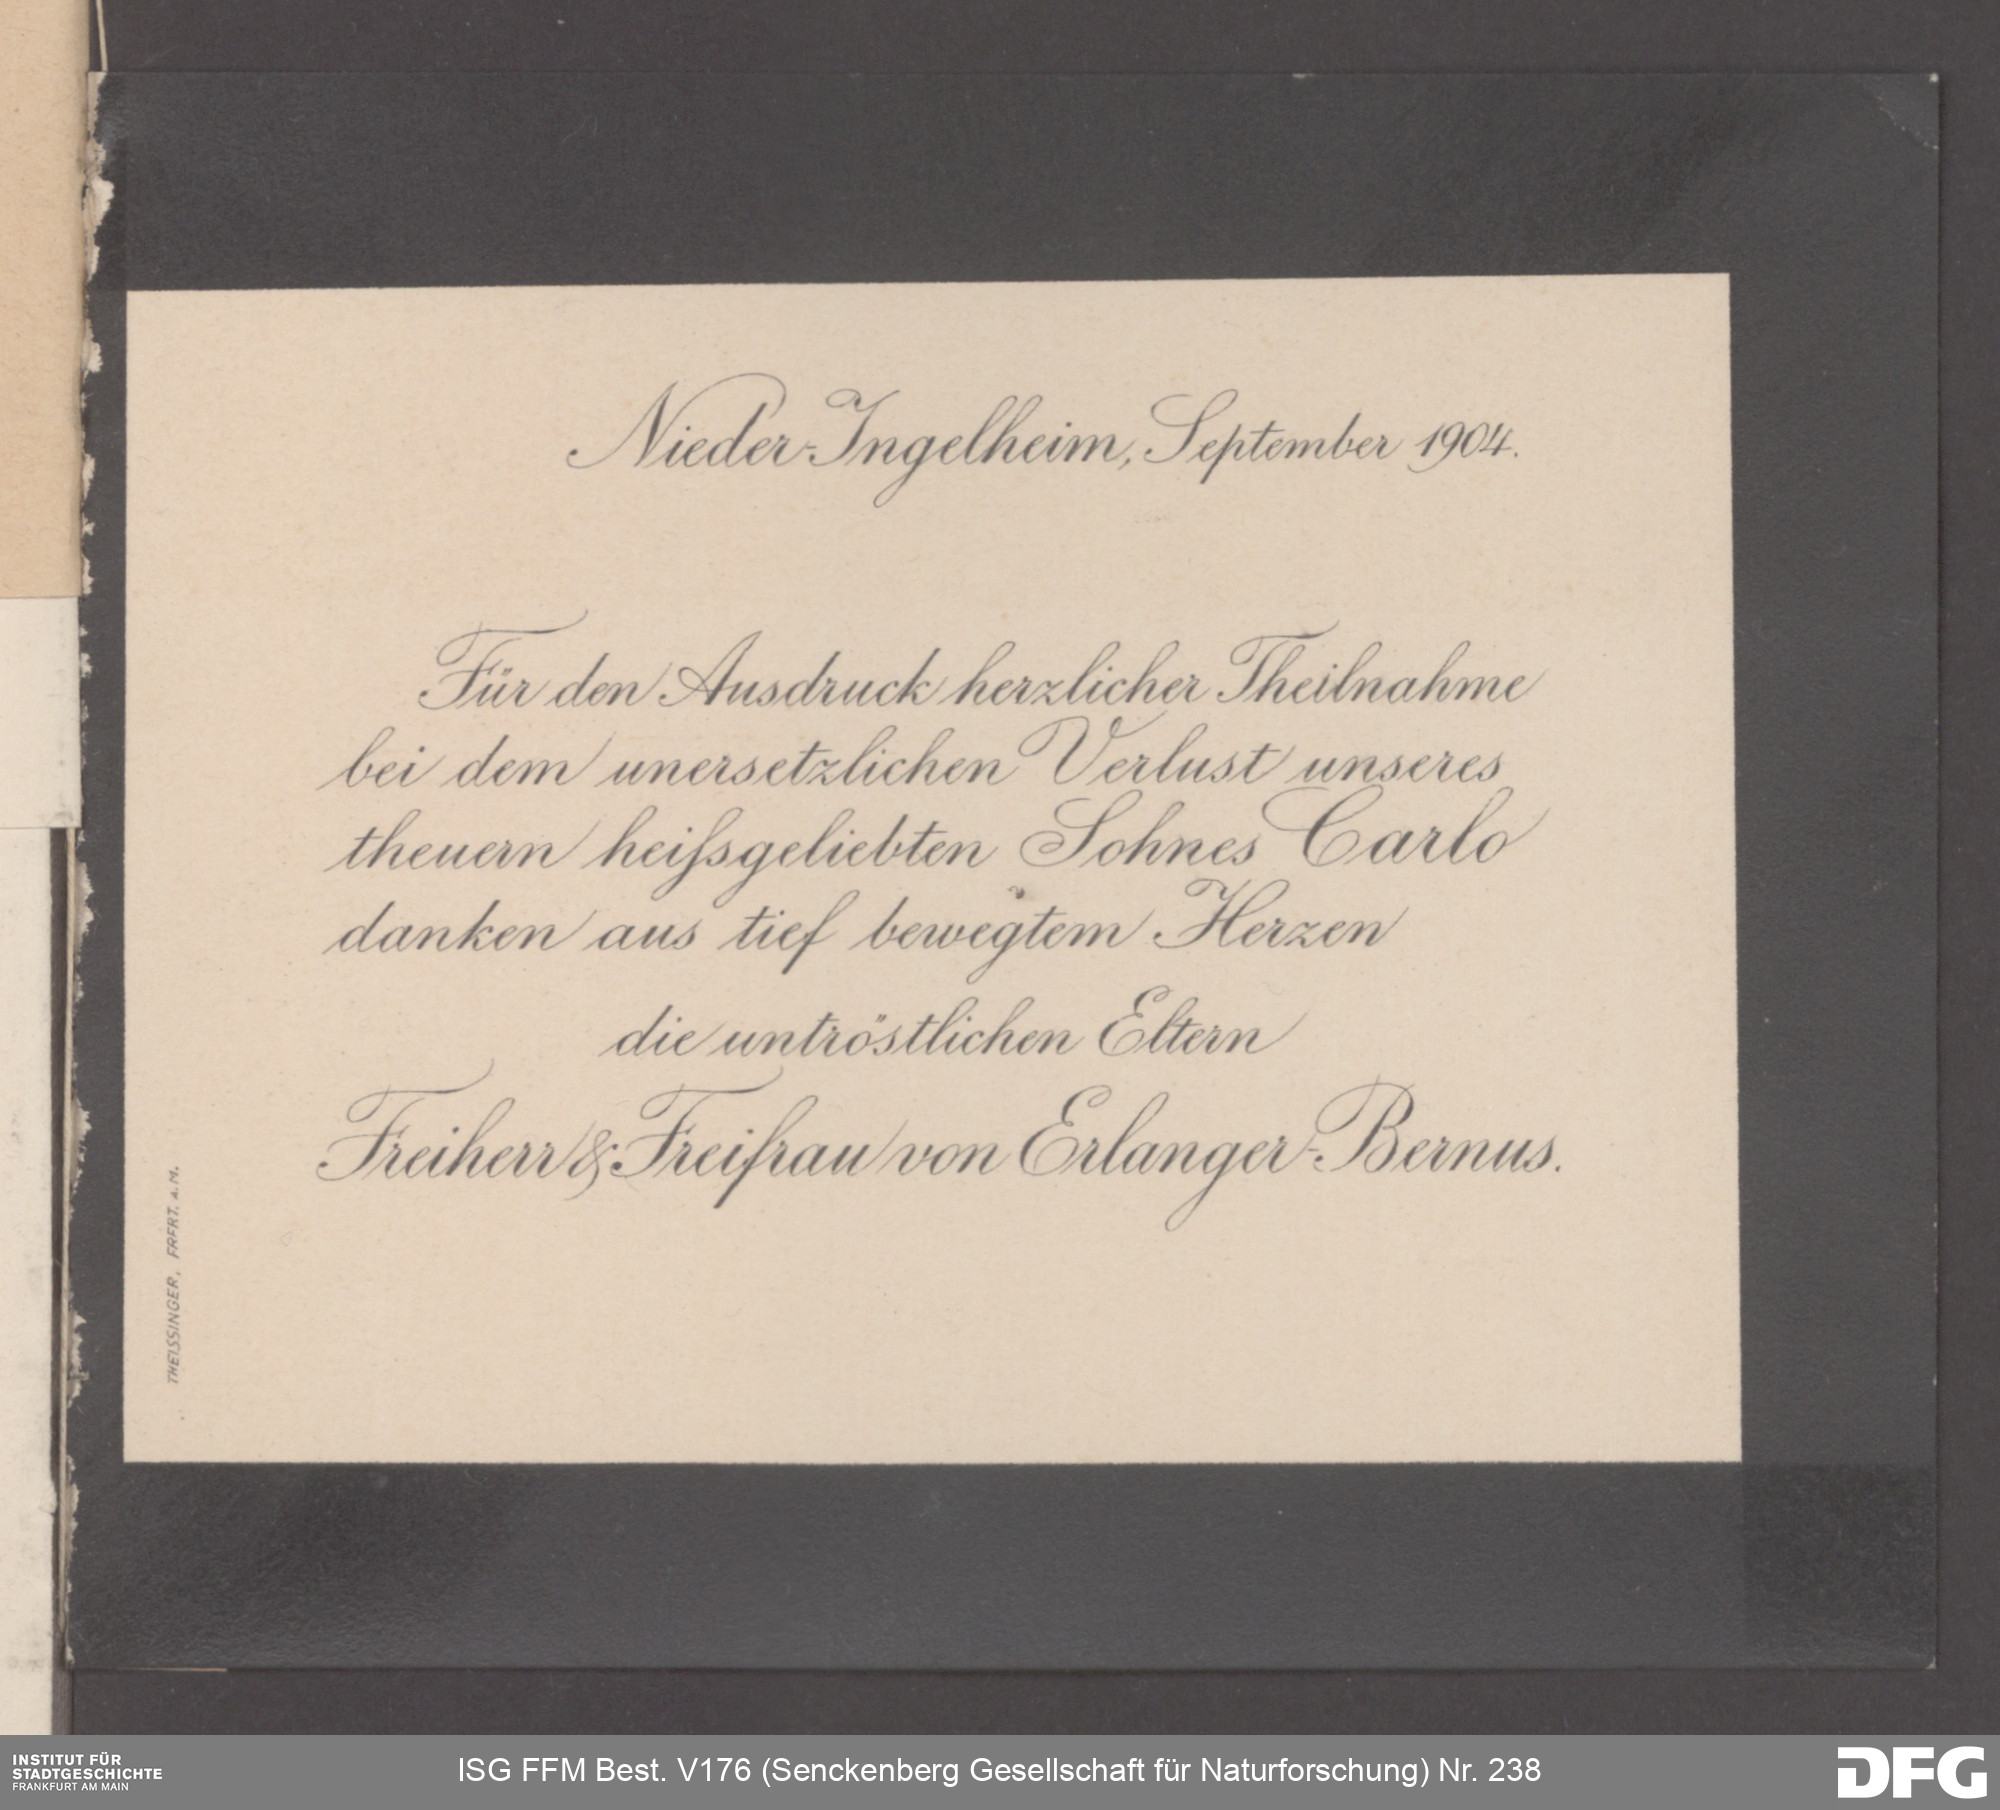 Nieder-Ingelheim, September 1904.
Für den Ausdruck herzlicher Theilnahme
bei dem unersetzlichen Verlust unseres
theuern heißgeliebten Sohnes Carlo
danken aus tief bewegtem Herzen
die untröstlichen Eltern
Freiherr & Freifrau von Erlanger-Bernus.
THEISSINGER, FRFRT. A.M.
INSTITUT FÜR
STADTGESCHICHTE
FRANKFURT AM MAIN
ISG FFM Best. V176 (Senckenberg Gesellschaft für Naturforschung) Nr. 238
DFG